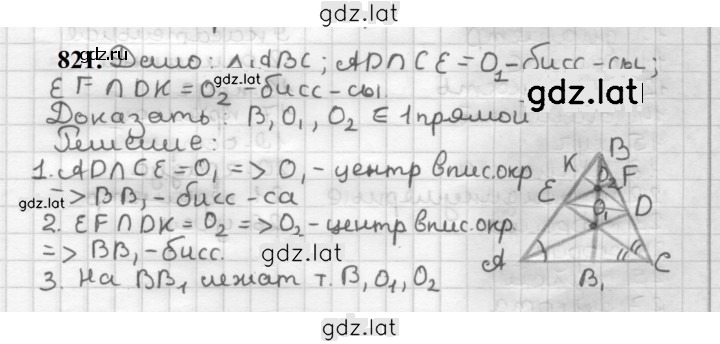 gdz.latr
821. Дано: △ABC; AD∩CE=O₁-бисс-сы;
gdz.latr
EF∩DK=O₂-бисс-сы
gdz.latr
Доказать: B, O₁, O₂ ∈ 1 прямой
Решение:
1. AD∩CE=O₁ => O₁ - центр впис.окр
=> BB₁ - бисс-са
gdz.latr
2. EF∩DK=O₂ => O₂ - центр впис.окр.
=> BB₁ - бисс.
3. На BB₁ лежат т. B, O₁, O₂
K B F
O₂
E O₁ D
A B₁ C
gdz.latr